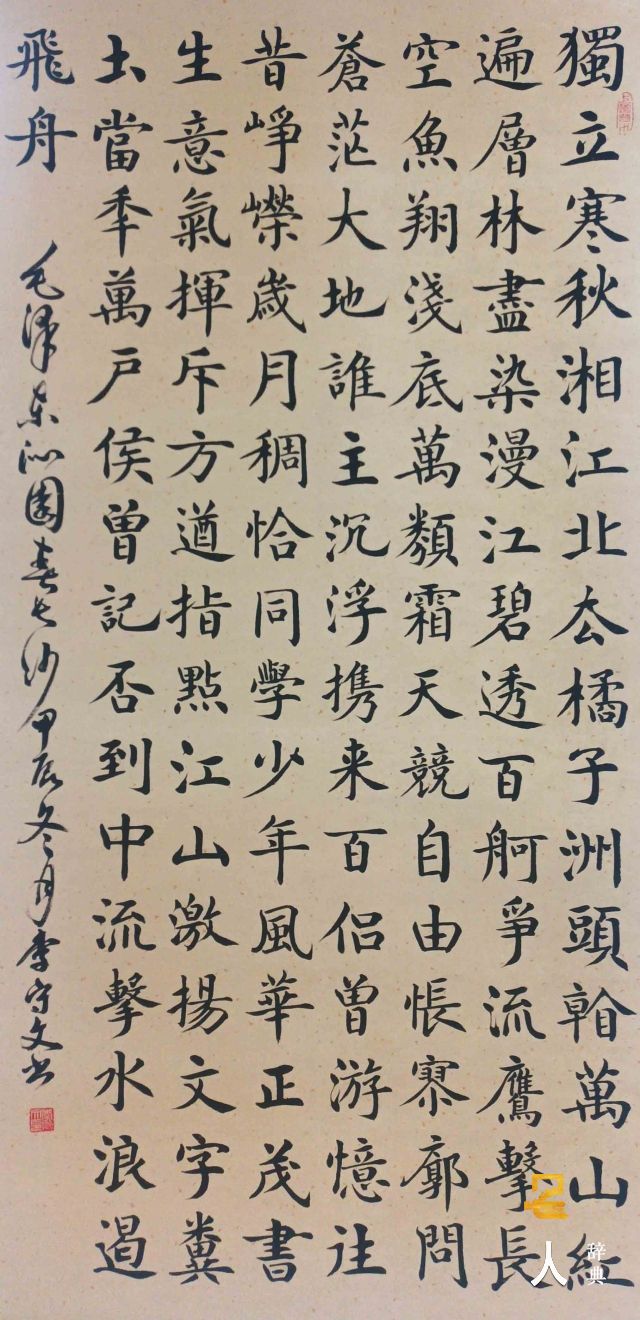 獨立寒秋湘江北去橘子洲頭看萬山紅
遍層林盡染漫江碧透百舸爭流鷹擊長
空魚翔淺底萬類霜天競自由悵寥廓問
蒼茫大地誰主沉浮携来百侣曽游憶往
昔崢嶸歲月稠恰同學少年風華正茂書
生意氣揮斥方遒指點江山激揚文字糞
土當年萬户侯曽記否到中流擊水浪遏
飛舟
毛澤东沁園春長沙甲辰冬月李守文书
名人辞典